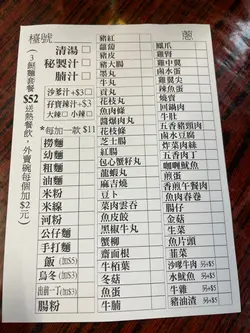 檯號
葱
清湯
秘製汁
腩汁
沙爹汁+$3
孖寶辣汁+$3
大辣 小辣
*每加一款 $11
撈麵
幼麵
粗麵
油麵
米粉
米線
河粉
公仔麵
手打麵
飯(加$5)
烏冬(加$3)
出前一丁(加$3)
腸粉
(3餸麵套餐
$52
送熱餐飲,外賣碗每個加$2元)
豬紅
蘿蔔
豬皮
豬大腸
墨丸
牛丸
貢丸
花枝丸
魚肉丸
爆漿瀨尿丸
花枝條
芝士腸
紅腸
包心蟹籽丸
龍蝦丸
麻吉燒
豆卜
菜肉雲呑
魚皮餃
黑椒牛丸
蟹柳
齋面根
牛栢葉
冬菇
魚蛋
牛腩
鳳爪
雞腎
雞中翼
鹵水蛋
雞翼尖
辣魚蛋
燒賣
回鍋肉
牛肚
五香豬頸肉
鹵水豆腐
炸菜肉絲
五香肉丁
咖喱魷魚
煎蛋
香煎午餐肉
魚肉春卷
腸仔
金菇
生菜
魚片頭
韮菜
沙嗲牛肉 另+$5
牛𦟌 另+$5
牛雜 另+$5
豬油渣 另+$5